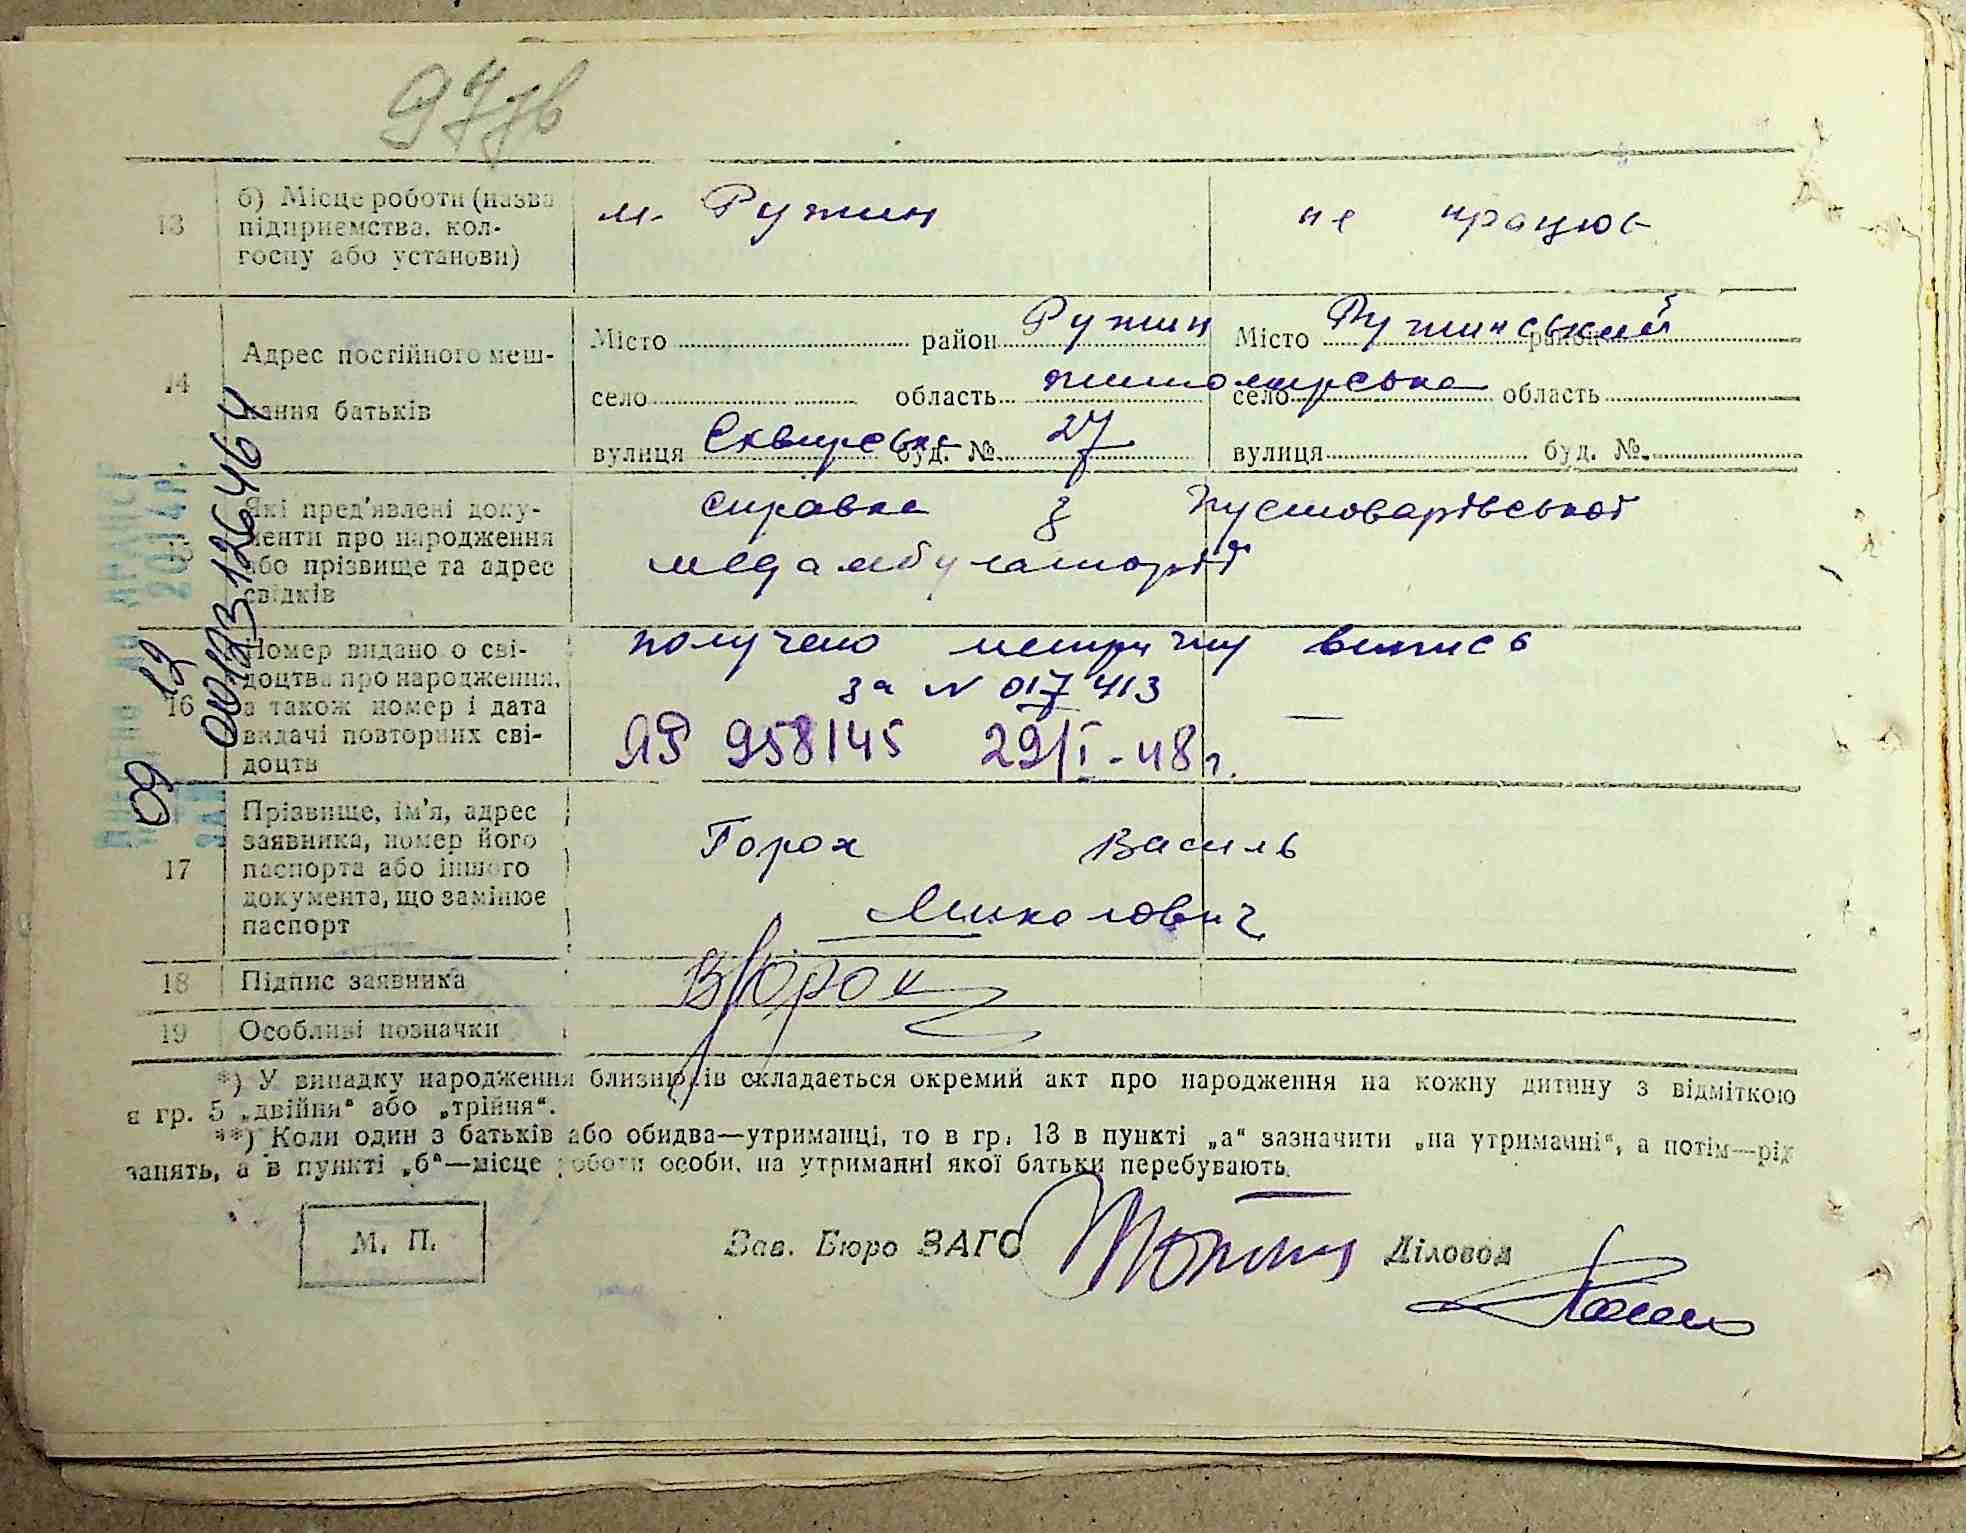 977б
13
б) Місце роботи (назва
підприємства, кол-
госпу або установи)
м. Ружин
не працює
14
Адрес постійного меш-
кання батьків
Місто район Ружин
село область житомирська
вулиця Сквирська буд. № 27
Місто Ружинський район
село область
вулиця буд. №
15
Які пред'явлені доку-
менти про народження
або прізвище та адрес
свідків
справка з Пустоварівської
медамбулаторії
16
Номер видано о сві-
доцтва про народження,
а також номер і дата
видачі повторних сві-
доцтв
получено метричну випись
за N 017413
ЯР 958145 29/I-48г.
—
17
Прізвище, ім'я, адрес
заявника, номер його
паспорта або іншого
документа, що замінює
паспорт
Горох Василь
Миколович
18
Підпис заявника
ВГорох
19
Особливі позначки
*) У випадку народження близнюків складається окремий акт про народження на кожну дитину з відміткою
в гр. 5 „двійня“ або „трійня“.
**) Коли один з батьків або обидва—утриманці, то в гр. 13 в пункті „а“ зазначити „на утриманні“, а потім—рід
занять, а в пункті „б“—місце роботи особи, на утриманні якої батьки перебувають.
М. П.
Зав. Бюро ЗАГС
Діловод
09 12
2014р.
00123126464